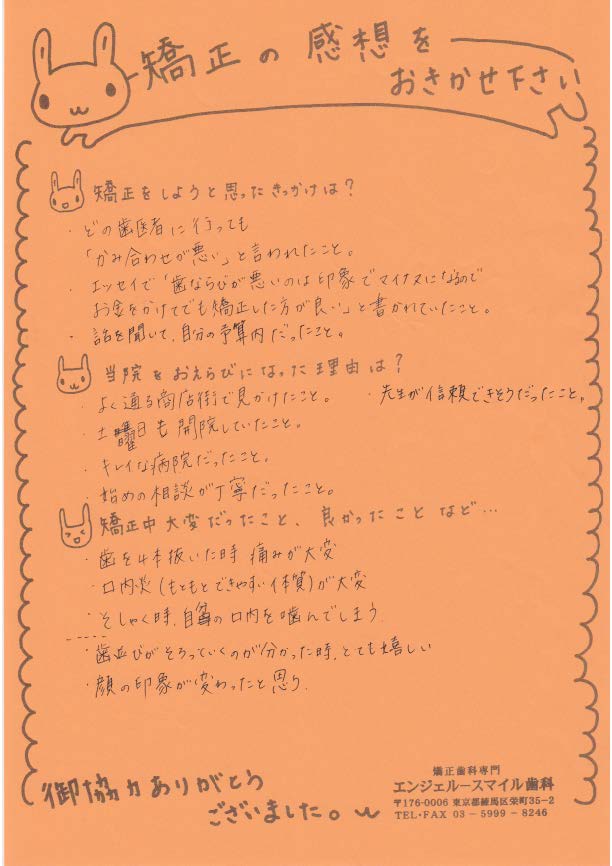 矯正の感想を
おきかせ下さい
矯正をしようと思ったきっかけは？
・どの歯医者に行っても
「かみ合わせが悪い」と言われたこと。
・エッセイで「歯ならびが悪いのは印象でマイナスになるので
お金をかけてでも矯正した方が良い」と書かれていたこと。
・話を聞いて、自分の予算内だったこと。
当院をおえらびになった理由は？
・よく通る商店街で見かけたこと。 ・先生が信頼できそうだったこと。
・土曜日も開院していたこと。
・キレイな病院だったこと。
・始めの相談が丁寧だったこと。
矯正中大変だったこと、良かったことなど…
・歯を4本抜いた時 痛みが大変
・口内炎(もともとできやすい体質)が大変
・そしゃく時、自分の口内を噛んでしまう
・歯並びがそろっていくのが分かった時、とても嬉しい
・顔の印象が変わったと思う.
御協力ありがとう
ございました。
矯正歯科専門
エンジェルースマイル歯科
〒176-0006 東京都練馬区栄町35－2
TEL・FAX 03 － 5999 － 8246